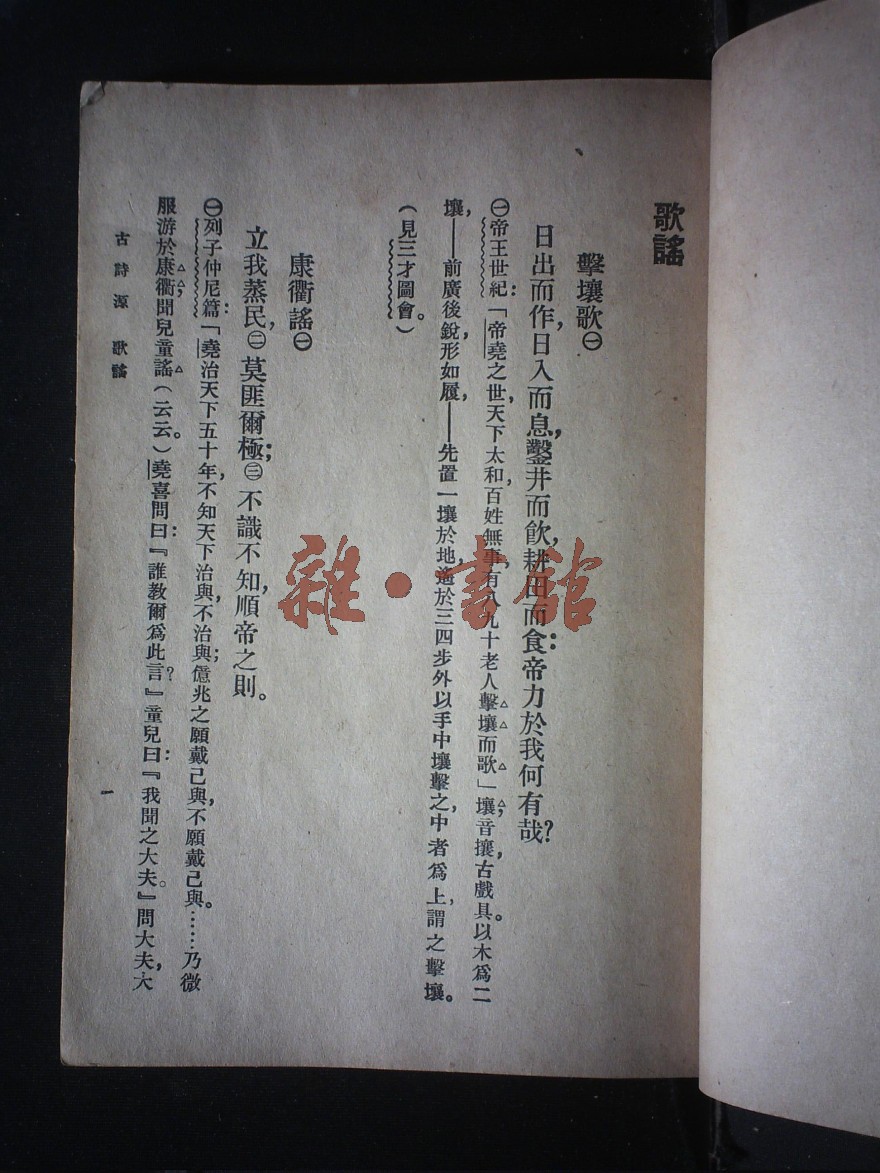 歌謠
擊壤歌㊀
日出而作，日入而息，鑿井而飲，耕田而食：帝力於我何有哉？
㊀帝王世紀：「帝堯之世，天下太和，百姓無事，有八九十老人擊壤而歌」壤，音攘，古戲具。以木爲二
壤，——前廣後銳，形如履，——先置一壤於地，遙於三四步外以手中壤擊之，中者爲上，謂之擊壤。
（見三才圖會。）
康衢謠㊀
立我蒸民，㊁莫匪爾極；㊂不識不知，順帝之則。
㊀列子仲尼篇：「堯治天下五十年，不知天下治與，不治與；億兆之願戴己與，不願戴己與。……乃微
服游於康衢，聞兒童謠（云云。）堯喜問曰：『誰敎爾爲此言？』童兒曰：『我聞之大夫。』問大夫，大
古詩源　歌謠
一
雜·書館